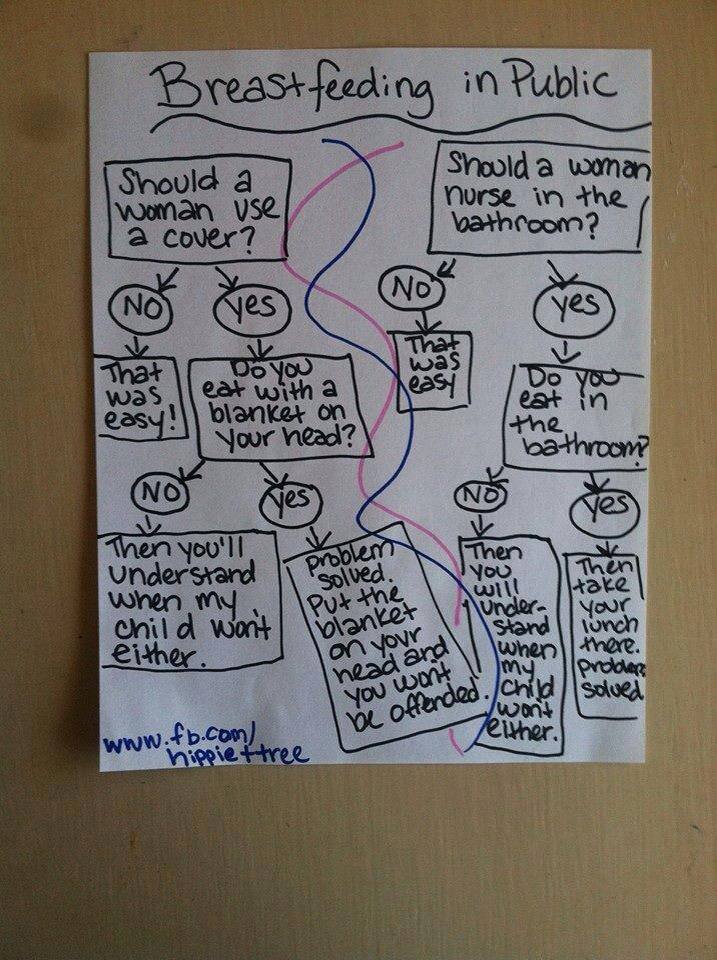 Breastfeeding in Public
Should a
woman use
a cover?
NO
yes
That
was
easy!
Do you
eat with a
blanket on
your head?
NO
yes
Then you'll
understand
when my
child won't
either.
problem
solved.
Put the
blanket
on your
head and
you won't
be offended.
Should a woman
nurse in the
bathroom?
NO
yes
That
was
easy
Do you
eat in
the
bathroom?
NO
yes
Then
you
will
under-
stand
when
my
child
won't
either.
Then
take
your
lunch
there.
problem
solved
www.fb.com/
hippiettree